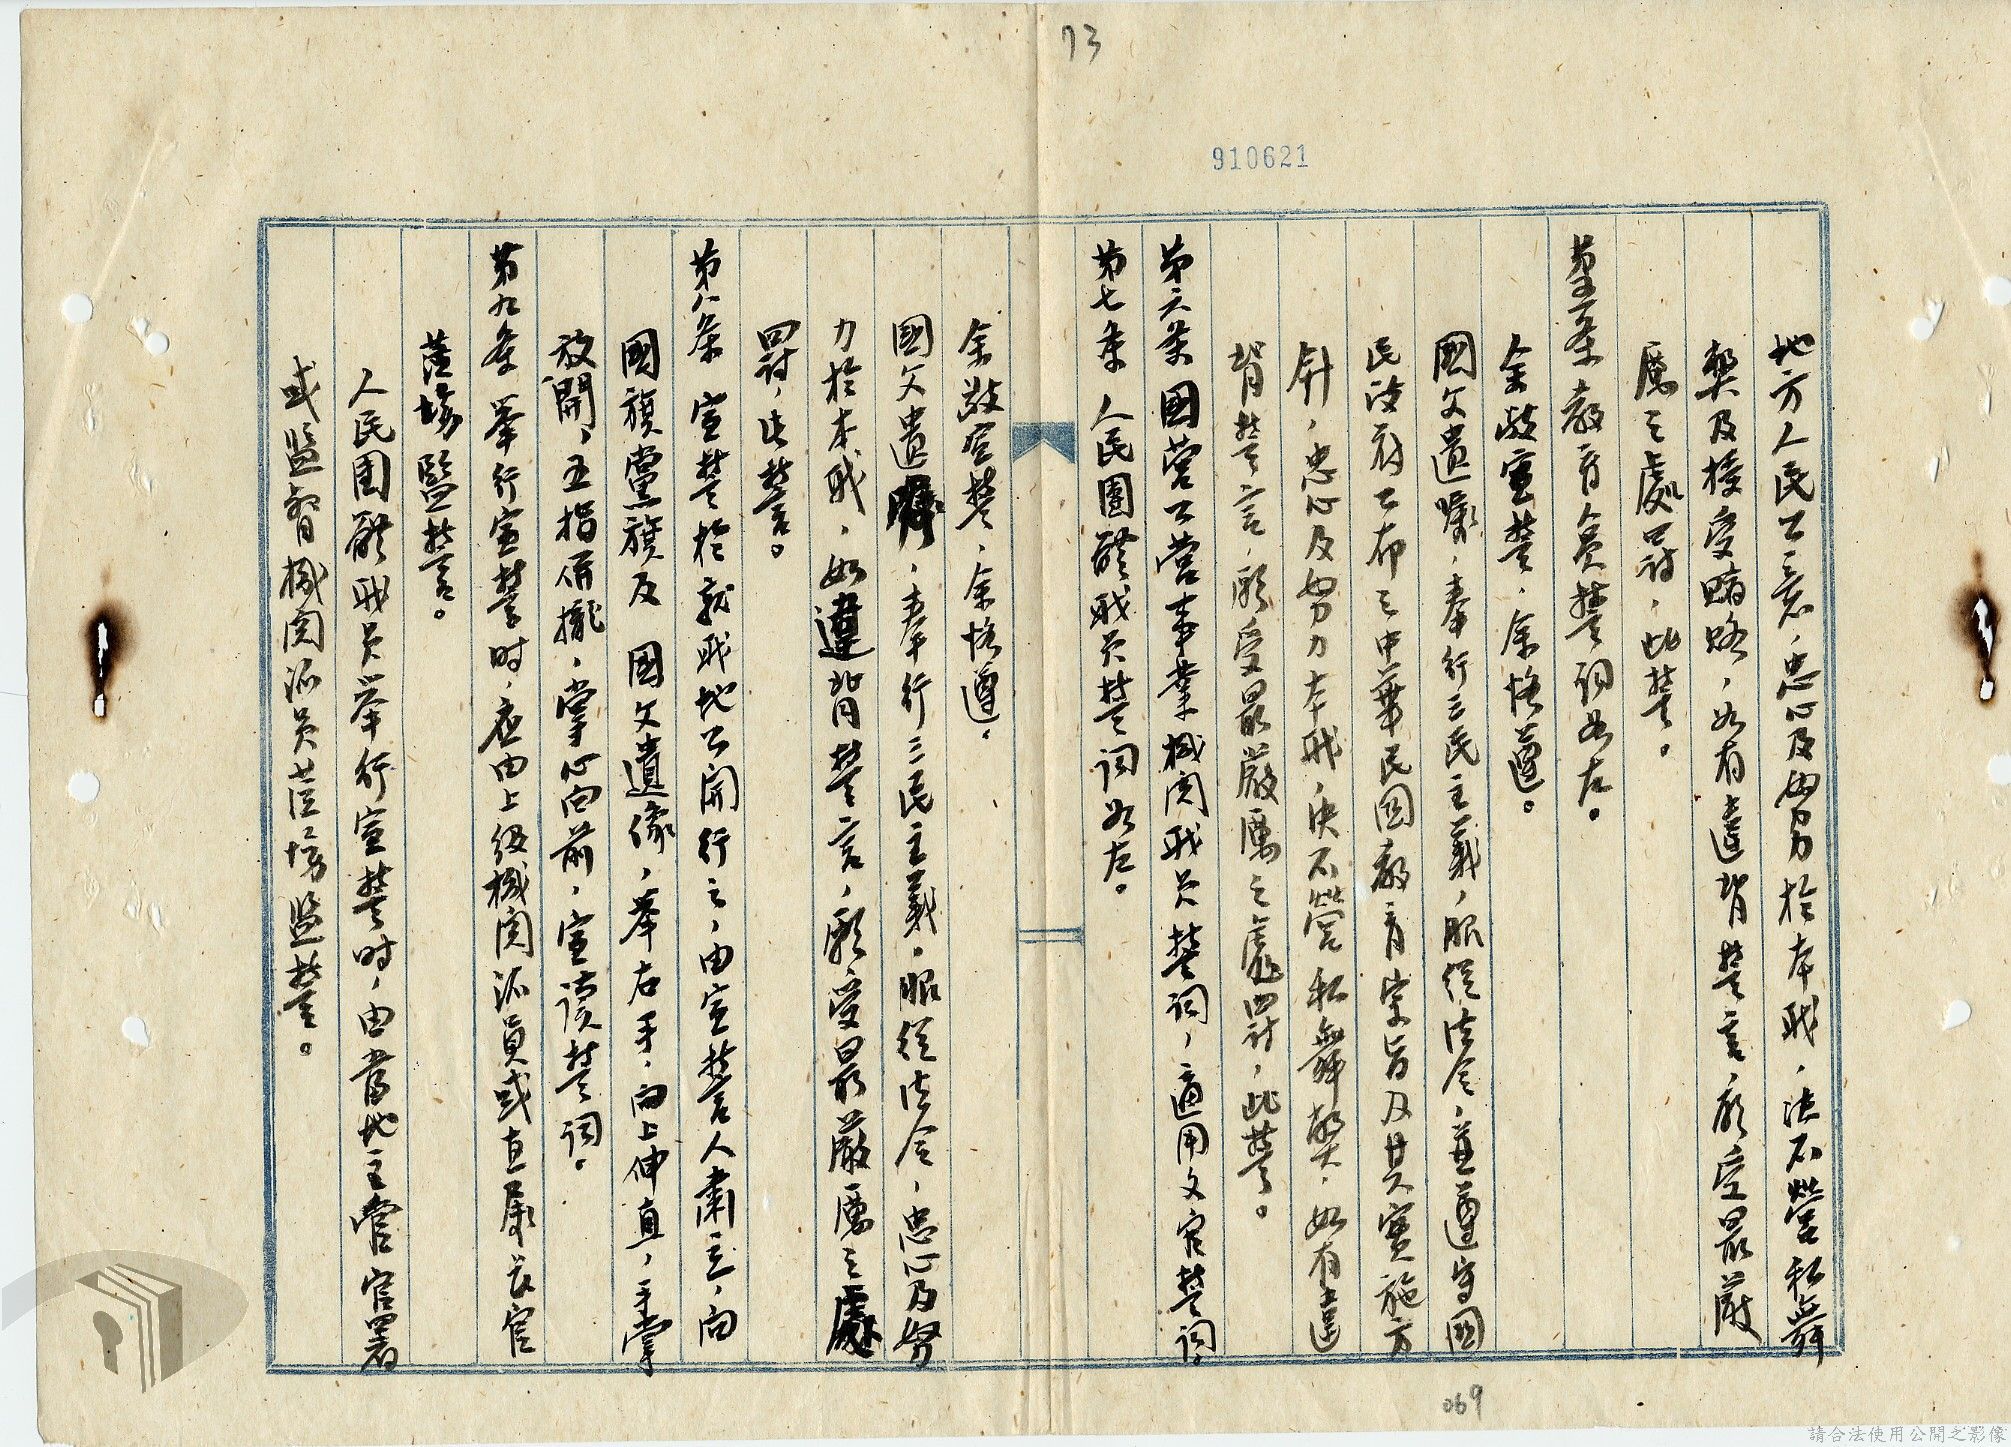 73
910621
地方人民公意，忠心及努力於本職，決不營私舞
弊及接受賄賂，如有違背誓言，願受最嚴
厲之處罸，此誓。
第五条 教育人員誓詞如左。
余敬宣誓，余恪遵。
國父遺囑，奉行三民主義，服從法令，並遵守國
民政府公布之中華民国教育宗旨及其實施方
針，忠心及努力本职，决不營私舞弊，如有違
背誓言，願受最嚴厲之處罸，此誓。
第六条 國营公营事業機関职员誓詞，適用文官誓詞。
第七条 人民團體职员誓詞如左。
余敬宣誓，余恪遵。
國父遺囑，奉行三民主義，服從法令，忠心及努
力於本职，如違背誓言，願受最嚴厲之處
罸，此誓。
第八条 宣誓於就职地公開行之，由宣誓人肅立，向
國旗黨旗及 國父遺像，舉右手，向上伸直，手掌
放開，五指併攏，掌心向前，宣读誓詞。
第九条 舉行宣誓时，应由上级機関派員或直屬长官
蒞場監誓。
人民團體职员举行宣誓时，由當地主管官署
或監督機関派员蒞場監誓。
069
請合法使用公開之影像